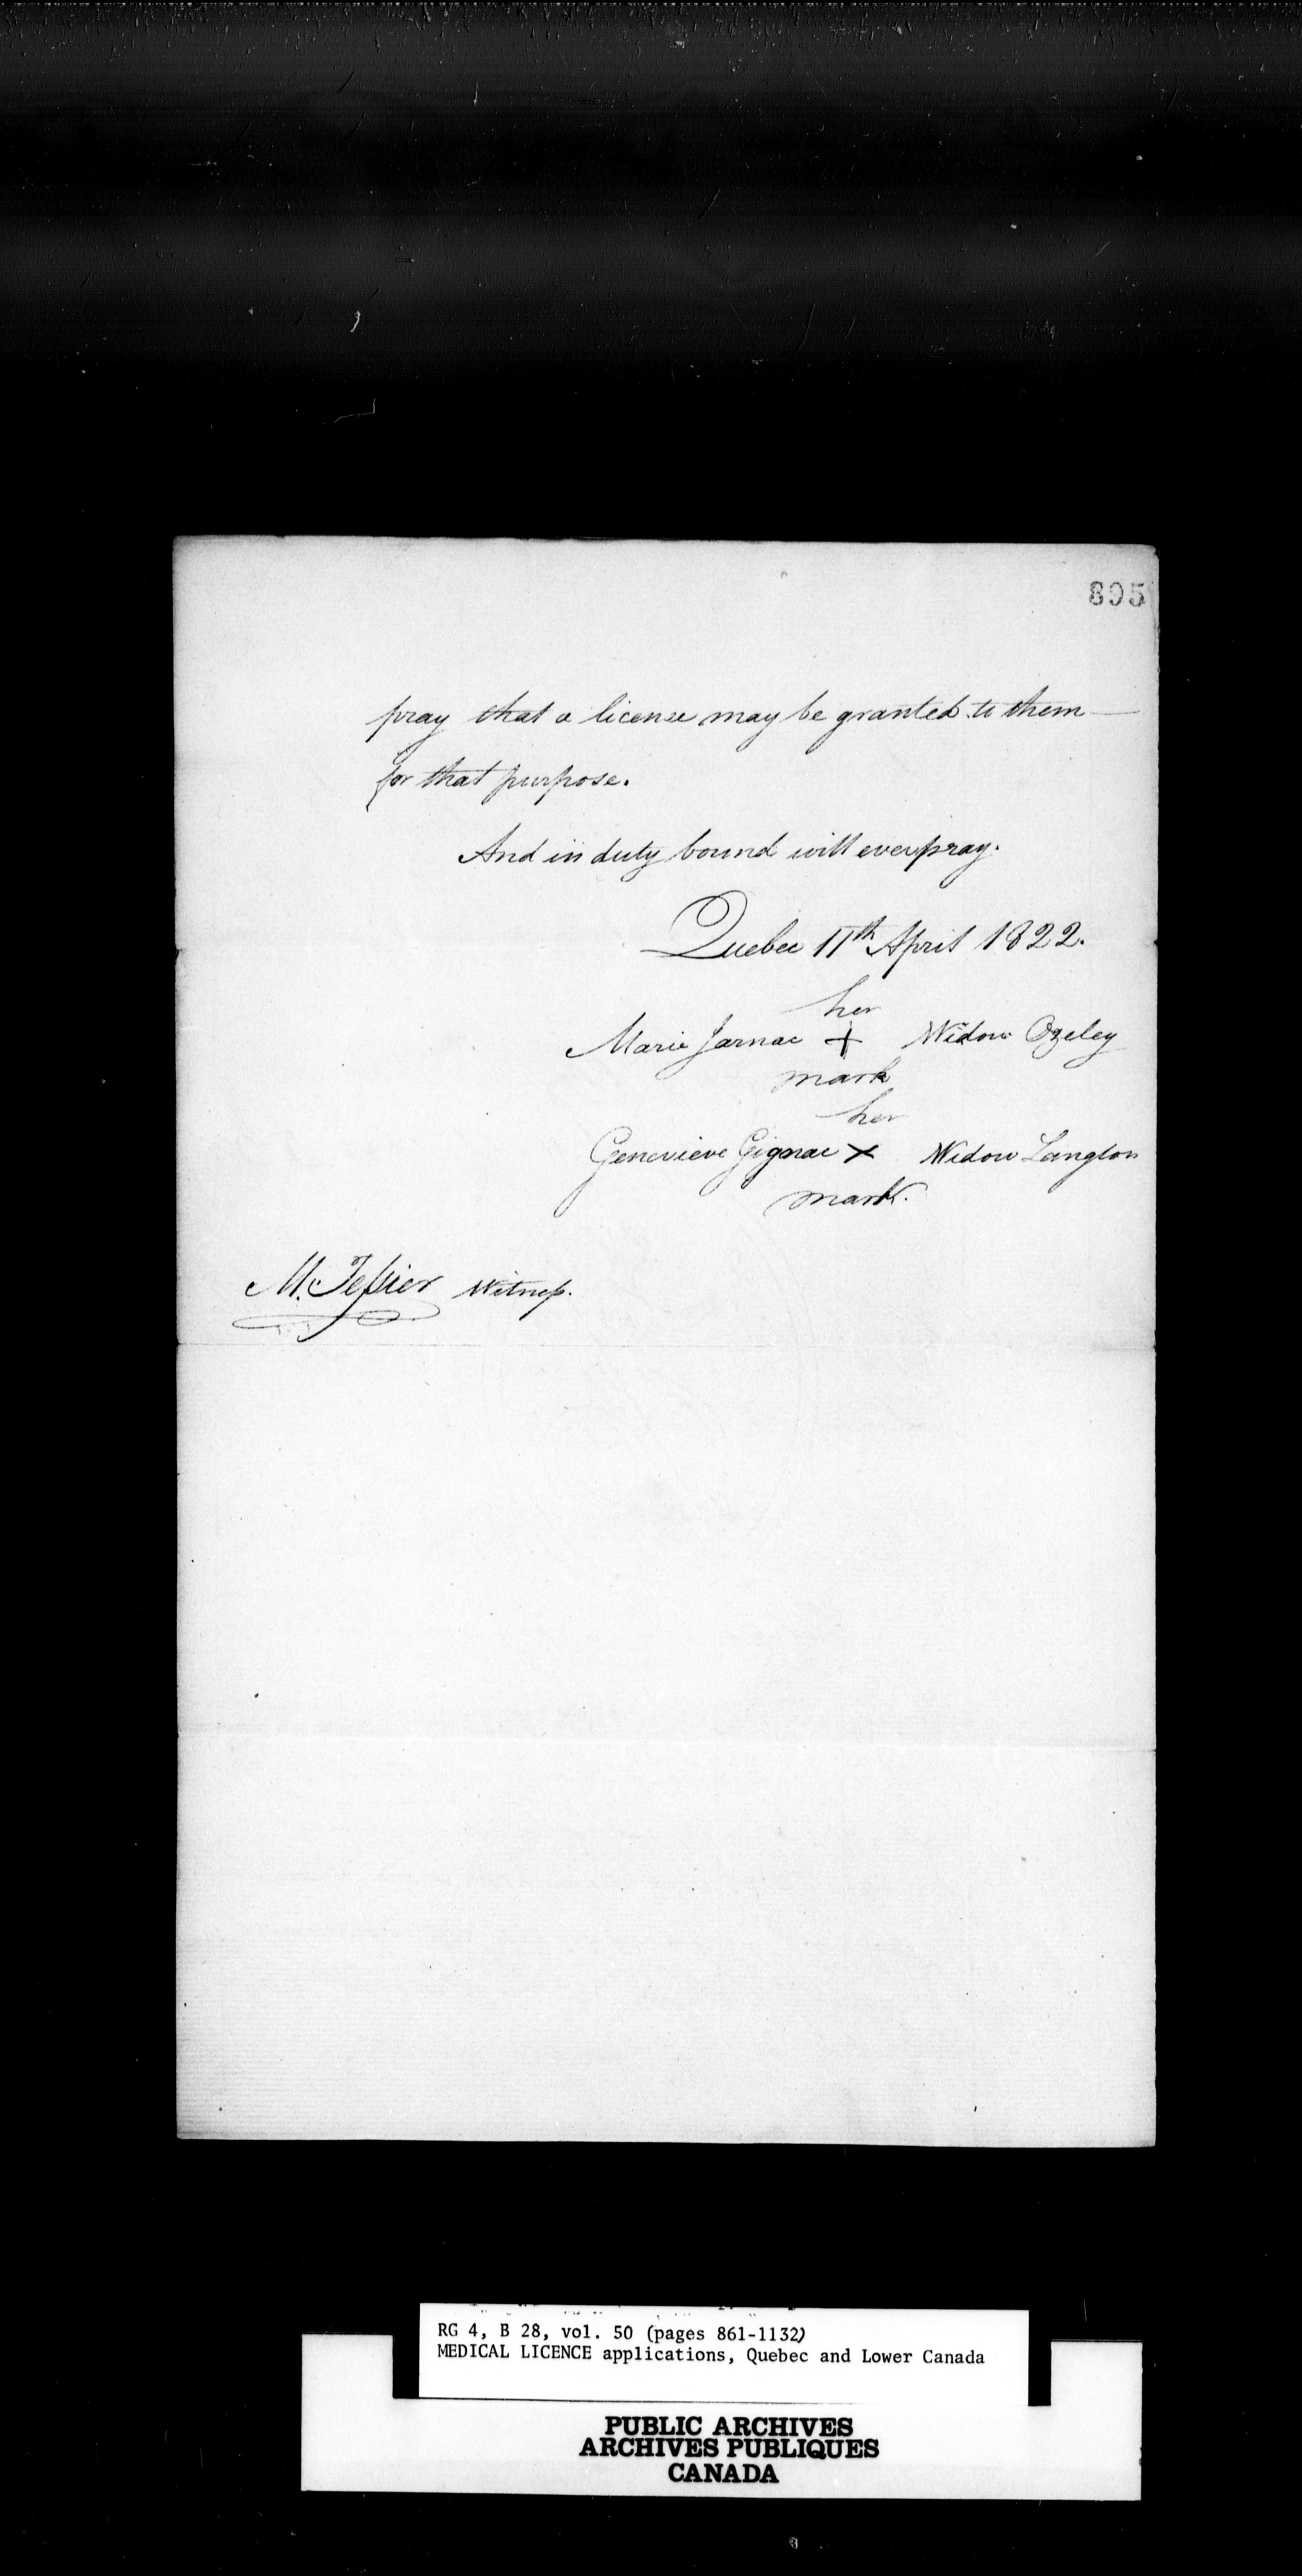 895
pray that a license may be granted to them —
for that purpose.
And in duty bound will ever pray.
Quebec 11th April 1822.
her
Marie Jarnac + Widow Ozeley
mark
her
Genevieve Gignac x Widow Langlois
mark.
M. Teſsier Witneſs.
RG 4, B 28, vol. 50 (pages 861-1132)
MEDICAL LICENCE applications, Quebec and Lower Canada
PUBLIC ARCHIVES
ARCHIVES PUBLIQUES
CANADA